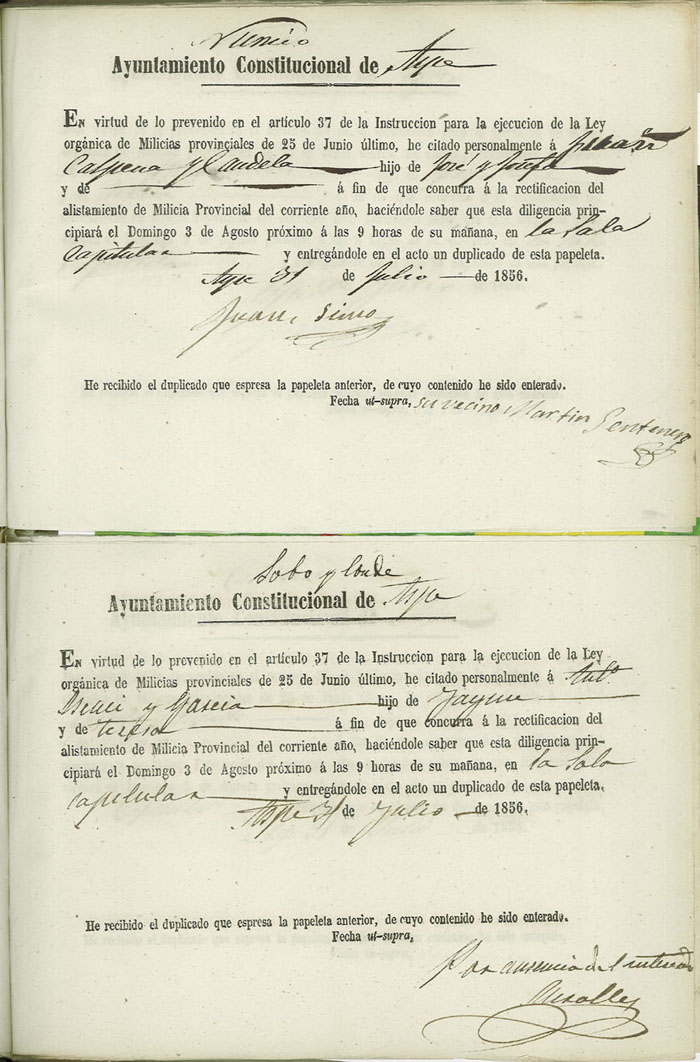 Nuncio
Ayuntamiento Constitucional de Aspe
En virtud de lo prevenido en el artículo 37 de la Instruccion para la ejecucion de la Ley
orgánica de Milicias provinciales de 25 de Junio último, he citado personalmente á
Calpena y Candela hijo de José y Josefa
y de á fin de que concurra á la rectificacion del
alistamiento de Milicia Provincial del corriente año, haciéndole saber que esta diligencia prin-
cipiará el Domingo 3 de Agosto próximo á las 9 horas de su mañana, en la Sala
Capitular y entregándole en el acto un duplicado de esta papeleta.
Aspe 31 de Julio de 1856.
Juan Simo
He recibido el duplicado que espresa la papeleta anterior, de cuyo contenido he sido enterado.
Fecha ut-supra, su vecino Martin Sentenero
Lobo y Conde
Ayuntamiento Constitucional de Aspe
En virtud de lo prevenido en el artículo 37 de la Instruccion para la ejecucion de la Ley
orgánica de Milicias provinciales de 25 de Junio último, he citado personalmente á Antº
y Garcia hijo de Jayme
y de Teresa á fin de que concurra á la rectificacion del
alistamiento de Milicia Provincial del corriente año, haciéndole saber que esta diligencia prin-
cipiará el Domingo 3 de Agosto próximo á las 9 horas de su mañana, en la Sala
capitular y entregándole en el acto un duplicado de esta papeleta.
Aspe 31 de Julio de 1856.
He recibido el duplicado que espresa la papeleta anterior, de cuyo contenido he sido enterado.
Fecha ut-supra,
Por ausencia del interesado